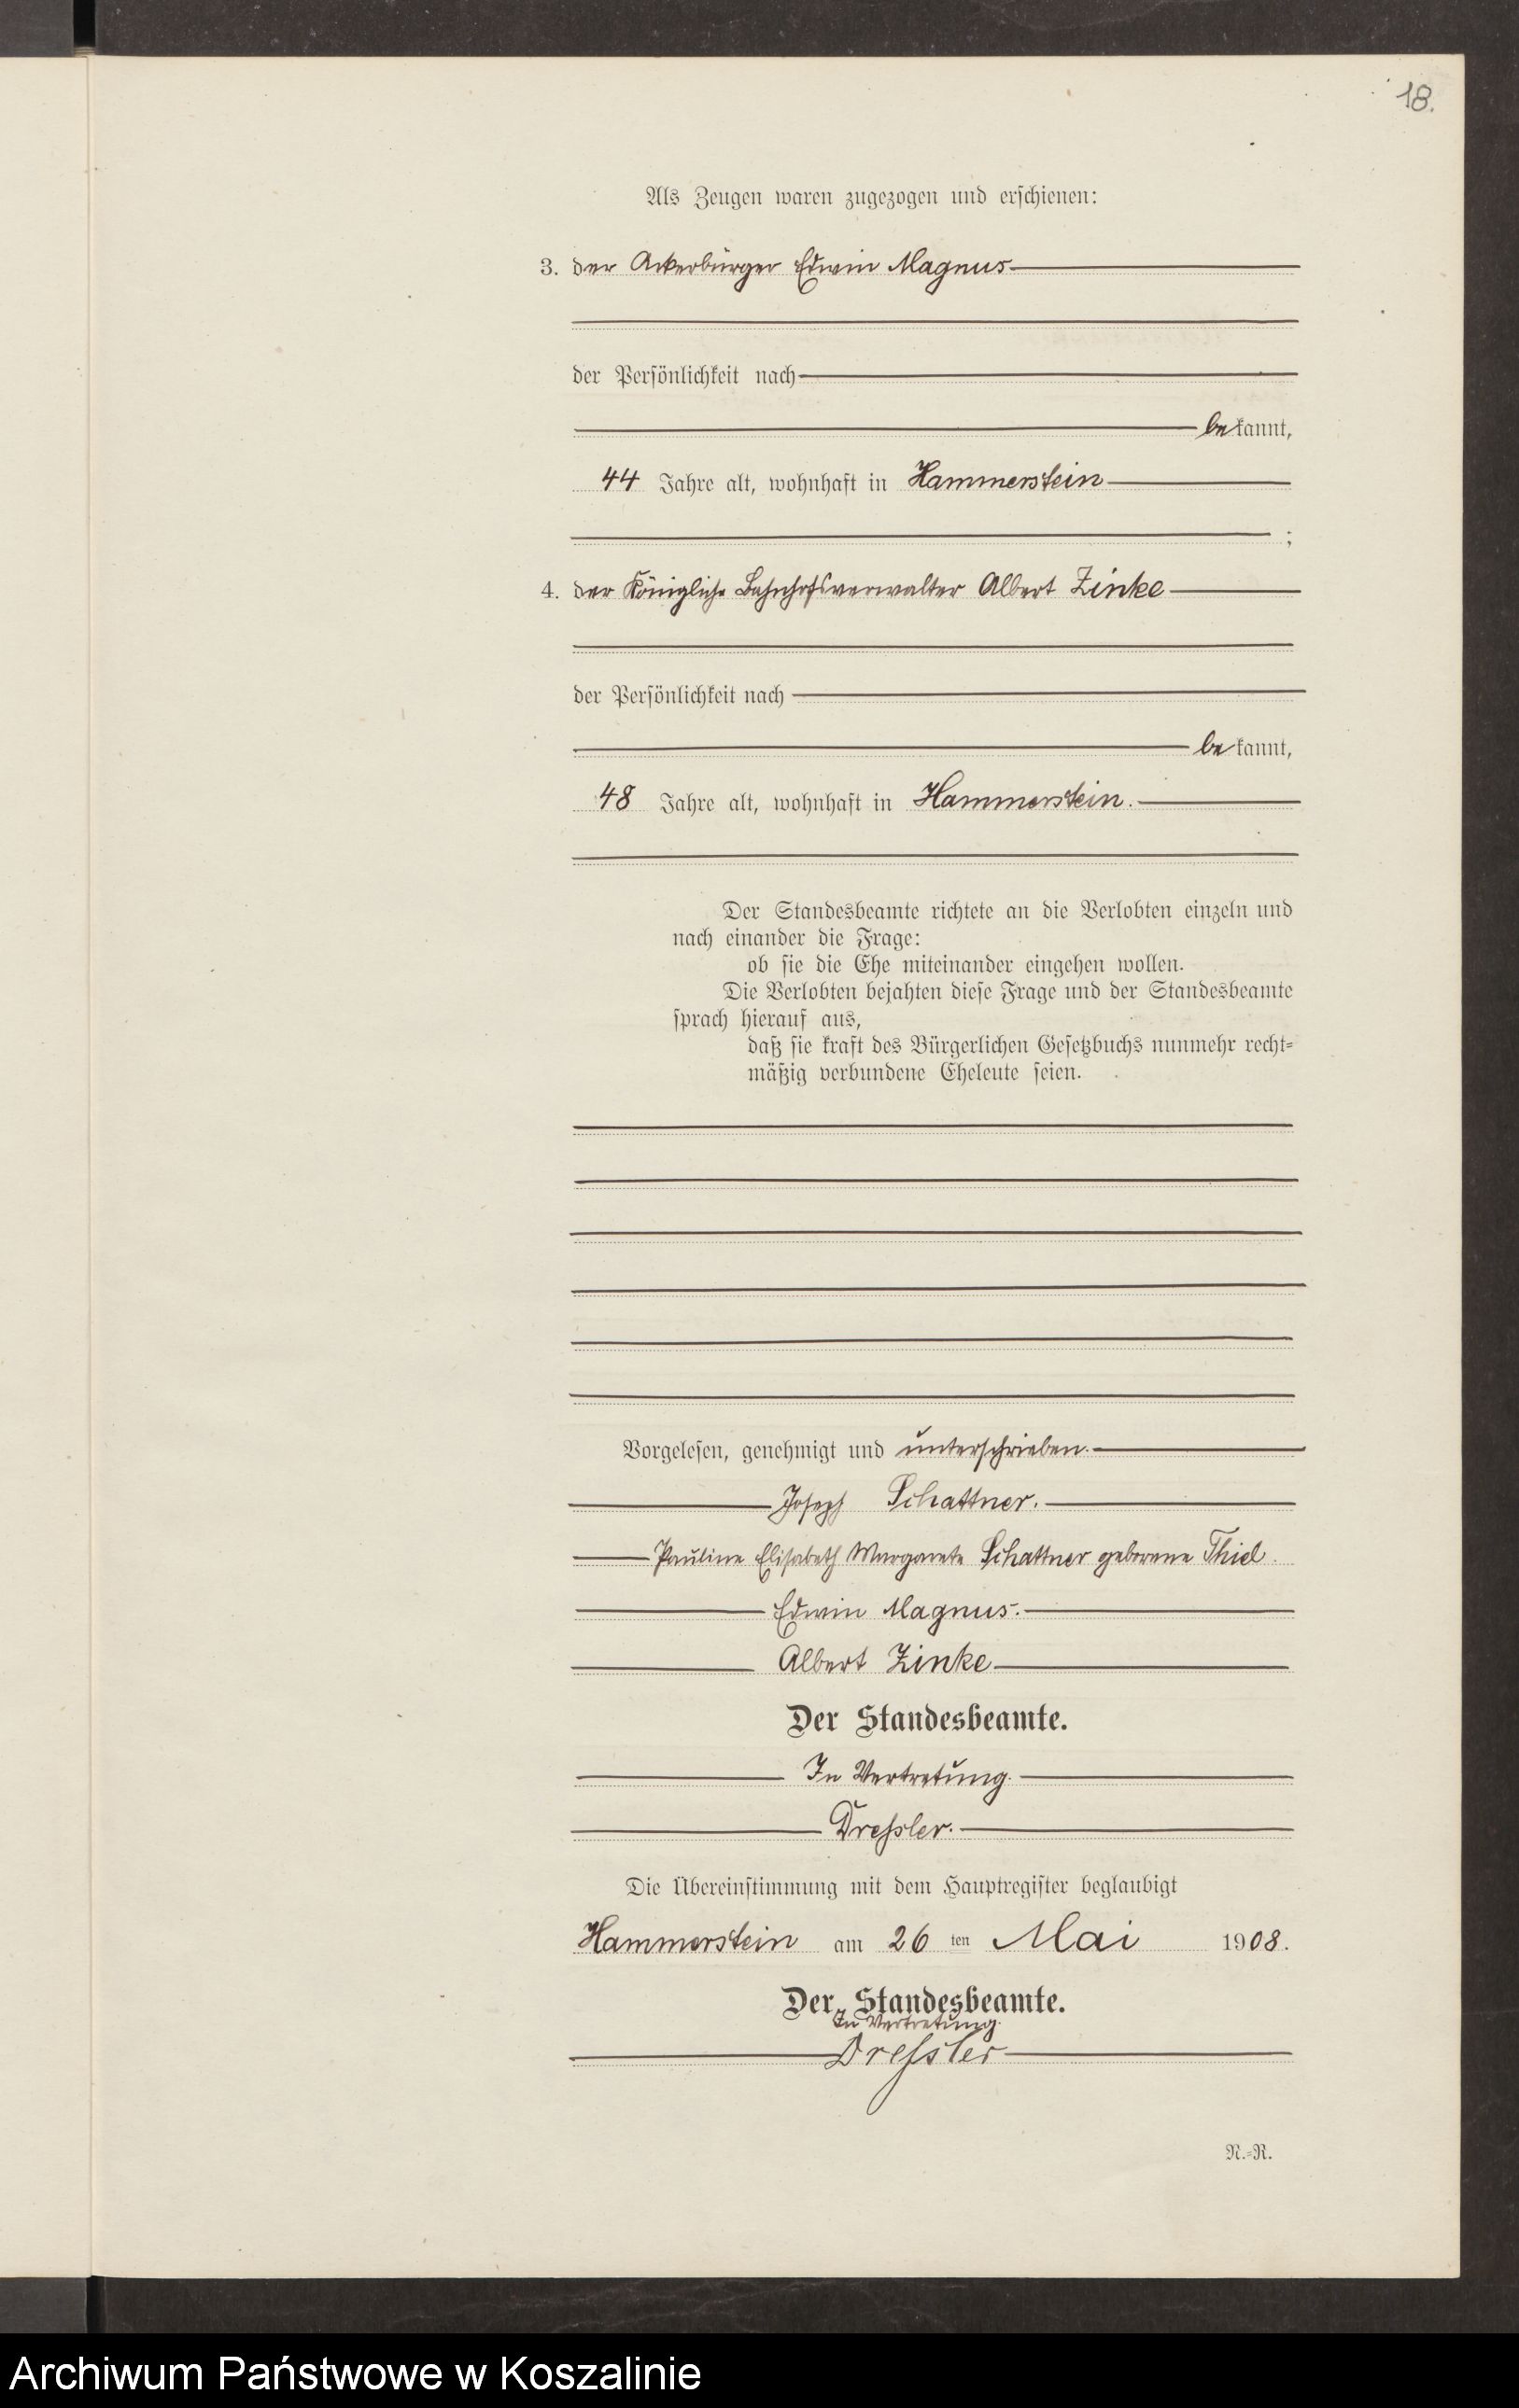 18.
Als Zeugen waren zugezogen und erschienen:
3. der Ackerbürger Edwin Magnus
der Persönlichkeit nach
bekannt,
44 Jahre alt, wohnhaft in Hammerstein
;
4. der Königliche Bahnhofsverwalter Albert Zinke
der Persönlichkeit nach
bekannt,
48 Jahre alt, wohnhaft in Hammerstein.
Der Standesbeamte richtete an die Verlobten einzeln und
nach einander die Frage:
ob sie die Ehe miteinander eingehen wollen.
Die Verlobten bejahten diese Frage und der Standesbeamte
sprach hierauf aus,
daß sie kraft des Bürgerlichen Gesetzbuchs nunmehr recht-
mäßig verbundene Eheleute seien.
Vorgelesen, genehmigt und unterschrieben.
Joseph Schattner.
Pauline Elisabeth Margarete Schattner geborene Thiel.
Edwin Magnus.
Albert Zinke
Der Standesbeamte.
In Vertretung.
Dreßler.
Die Übereinstimmung mit dem Hauptregister beglaubigt
Hammerstein am 26 ten Mai 1908.
Der Standesbeamte.
In Vertretung.
Dreßler
N.-R.
Archiwum Państwowe w Koszalinie